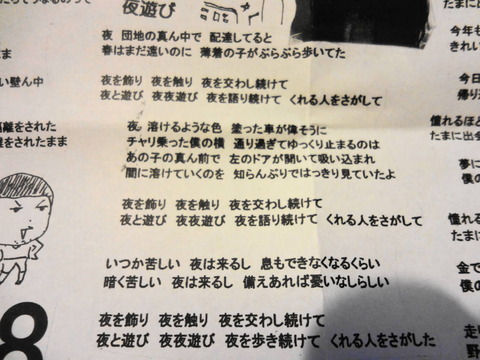 夜遊び
夜 団地の真ん中で 配達してると
春はまだ遠いのに 薄着の子がぶらぶら歩いてた
夜を飾り 夜を触り 夜を交わし続けて
夜と遊び 夜夜遊び 夜を語り続けて くれる人をさがして
夜。溶けるような色 塗った車が偉そうに
チャリ乗った僕の横 通り過ぎてゆっくり止まるのは
あの子の真ん前で 左のドアが開いて吸い込まれ
闇に溶けていくのを 知らんぷりではっきり見ていたよ
夜を飾り 夜を触り 夜を交わし続けて
夜と遊び 夜夜遊び 夜を語り続けて くれる人をさがして
いつか苦しい 夜は来るし 息もできなくなるくらい
暗く苦しい 夜は来るし 備えあれば憂いなしらしい
夜を飾り 夜を触り 夜を交わし続けて
夜と遊び 夜夜遊び 夜を歩き続けて くれる人をさがした
まま
い壁ん中
離をされた
離をされたまま
8
たまに出
今年も
きれい
今日
帰り道
憧れるほど
たまに出会
夢に
僕の
憧れる
たまに
金で
僕の
走り
野